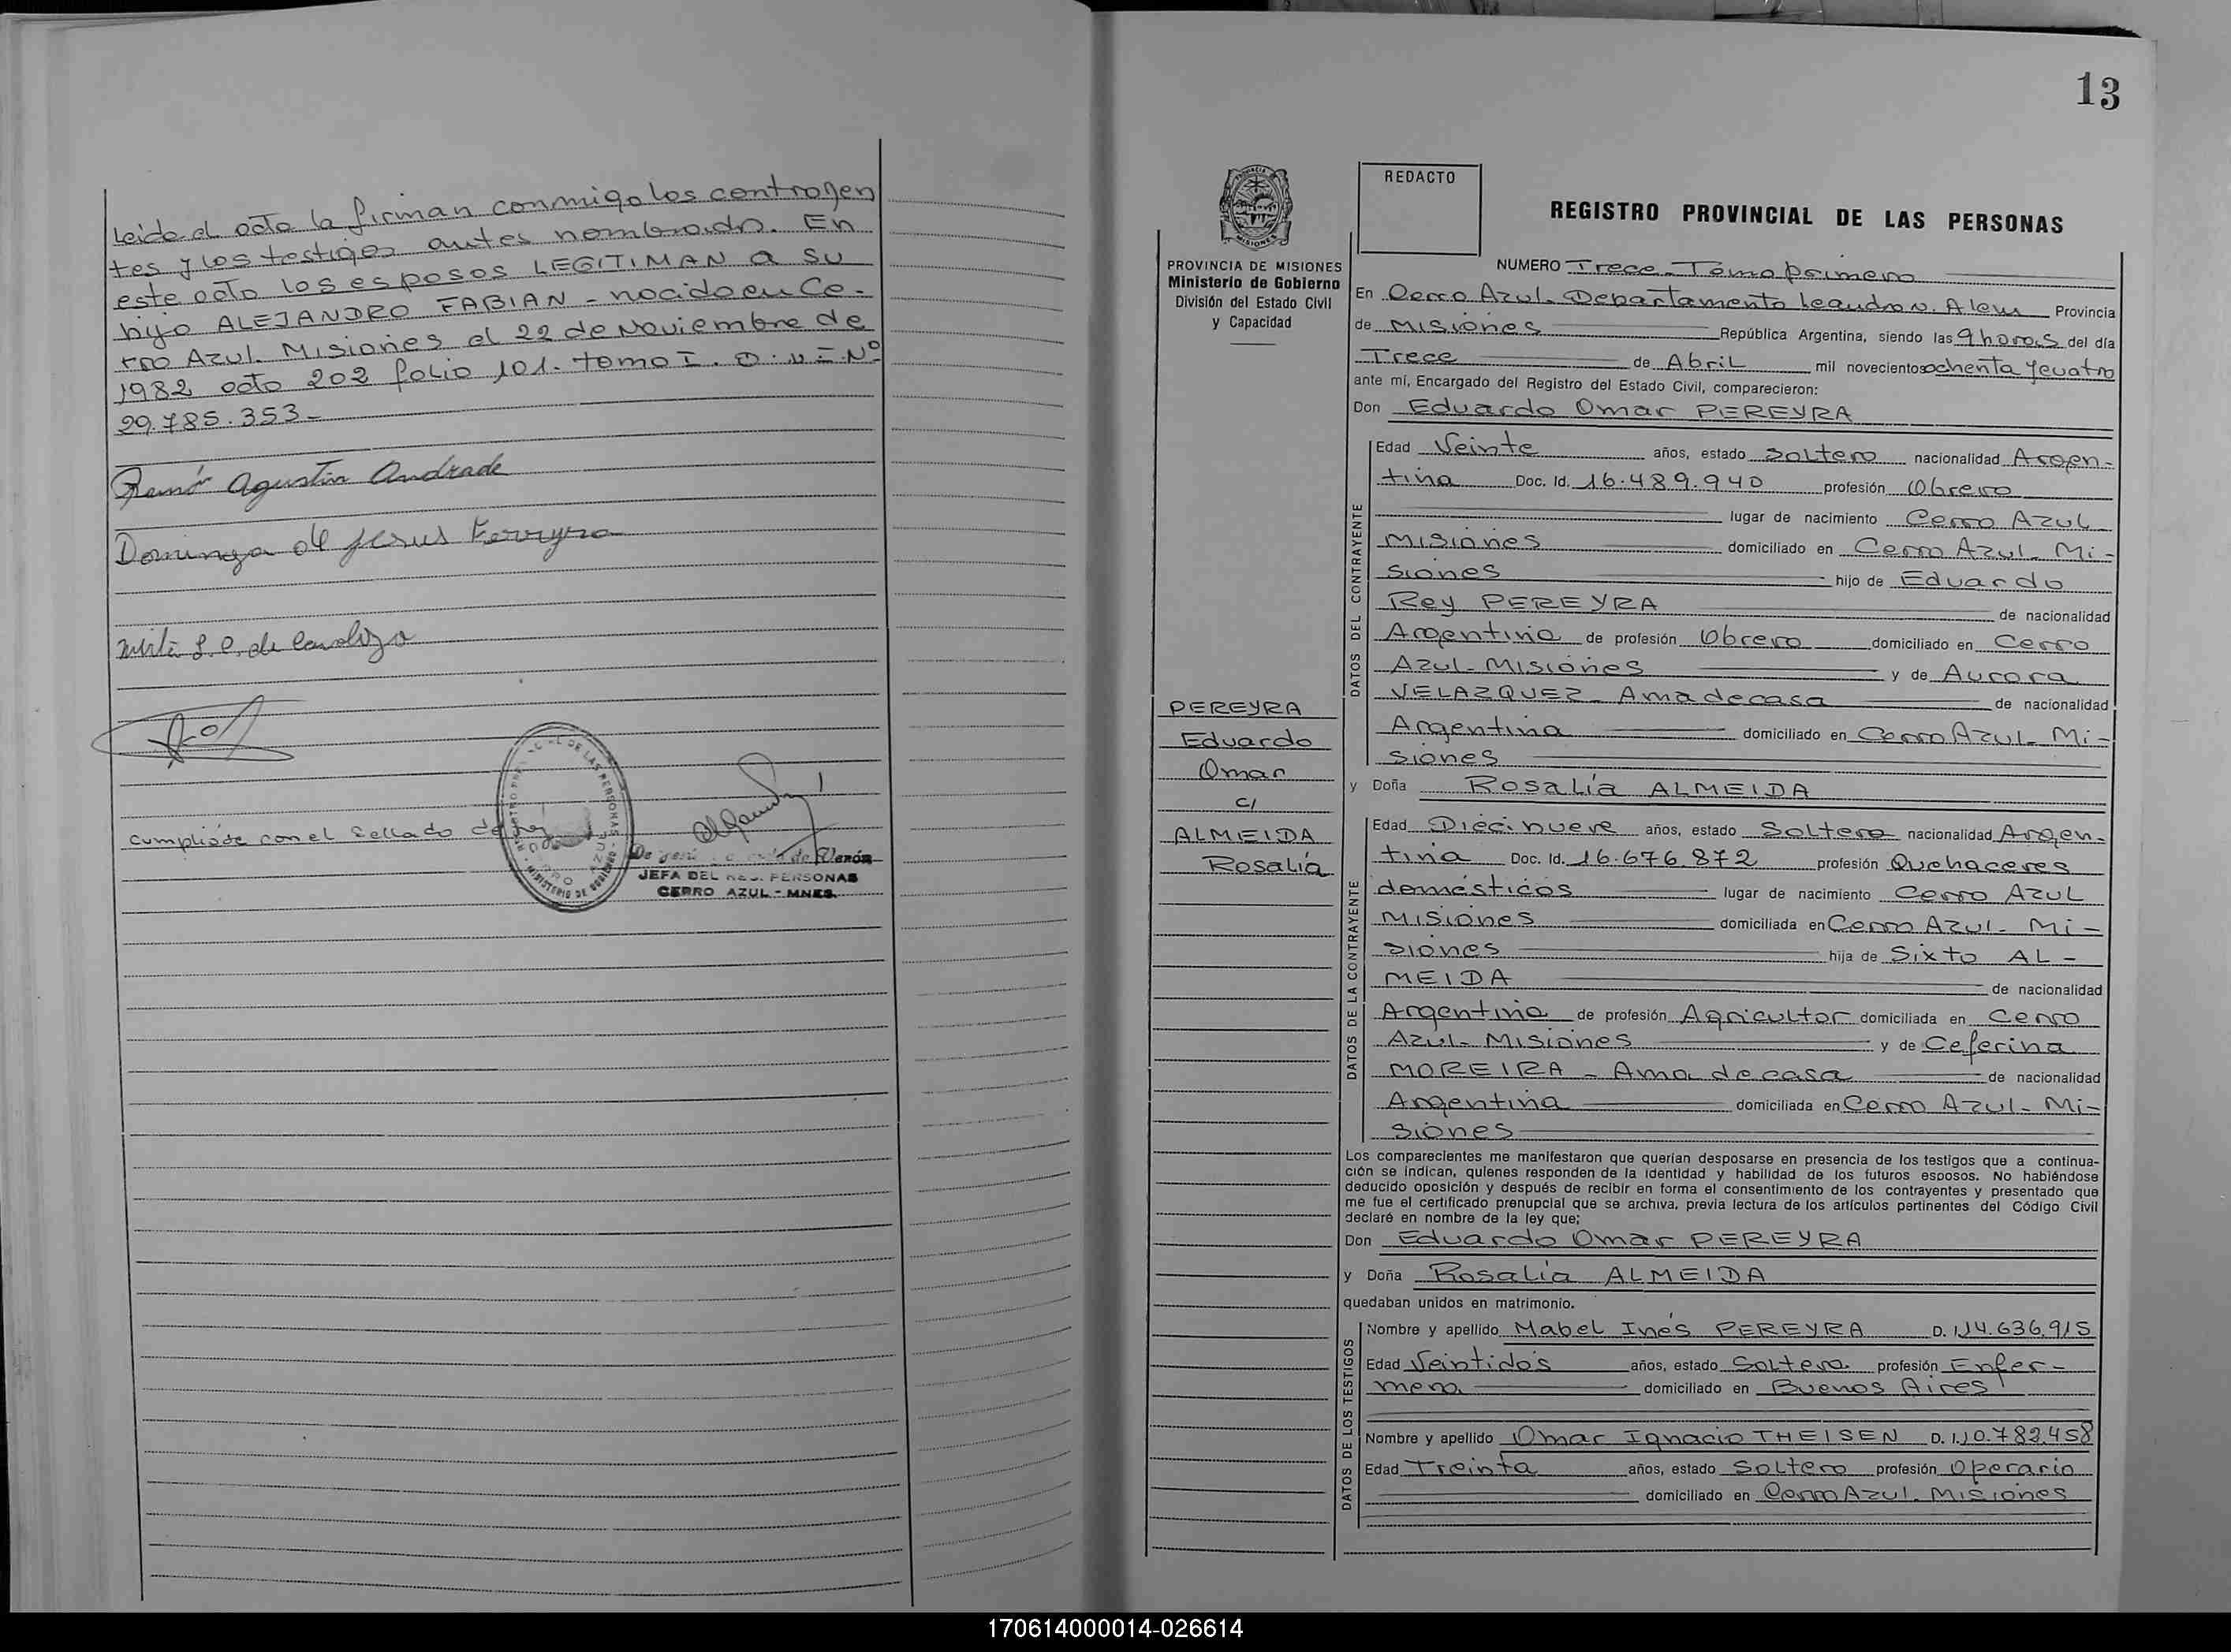 Leida el acta la firman conmigo los contrayen
tes y los testigos antes nombrados. En
este acto los esposos LEGITIMAN a su
hijo ALEJANDRO FABIAN - nacido en Ce-
rro Azul. Misiones el 22 de Noviembre de
1982 acta 202 folio 101. tomo I. D.N.I. Nº
29.785.353-
Ramón Agustín Andrade
Dominga de Jesus Ferreyra
Mirta de
cumplióse con el sellado de ley
JEFA DEL REG. PERSONAS
CERRO AZUL - MNES.
13
REDACTO
PROVINCIA DE MISIONES
Ministerio de Gobierno
División del Estado Civil
y Capacidad
PEREYRA
Eduardo
Omar
c/
ALMEIDA
Rosalía
REGISTRO PROVINCIAL DE LAS PERSONAS
NUMERO Trece - Tomo primero
En Cerro Azul - Departamento Leandro N. Alem Provincia
de Misiones República Argentina, siendo las 9 horas del día
Trece de Abril mil novecientos ochenta y cuatro
ante mí, Encargado del Registro del Estado Civil, comparecieron:
Don Eduardo Omar PEREYRA
DATOS DEL CONTRAYENTE
Edad Veinte años, estado soltero nacionalidad Argen-
tina Doc. Id. 16.489.940 profesión Obrero
lugar de nacimiento Cerro Azul
Misiones domiciliado en Cerro Azul - Mi-
siones hijo de Eduardo
Rey PEREYRA de nacionalidad
Argentina de profesión Obrero domiciliado en Cerro
Azul - Misiones y de Aurora
VELAZQUEZ - Ama de casa de nacionalidad
Argentina domiciliado en Cerro Azul - Mi-
siones
y Doña Rosalía ALMEIDA
DATOS DE LA CONTRAYENTE
Edad Diecinueve años, estado Soltera nacionalidad Argen-
tina Doc. Id. 16.676.872 profesión Quehaceres
domésticos lugar de nacimiento Cerro Azul
Misiones domiciliada en Cerro Azul - Mi-
siones hija de Sixto AL-
MEIDA de nacionalidad
Argentina de profesión Agricultor domiciliada en Cerro
Azul - Misiones y de Ceferina
MOREIRA - Ama de casa de nacionalidad
Argentina domiciliada en Cerro Azul - Mi-
siones
Los comparecientes me manifestaron que querían desposarse en presencia de los testigos que a continua-
ción se indican, quienes responden de la identidad y habilidad de los futuros esposos. No habiéndose
deducido oposición y después de recibir en forma el consentimiento de los contrayentes y presentado que
me fue el certificado prenupcial que se archiva, previa lectura de los artículos pertinentes del Código Civil
declaré en nombre de la ley que;
Don Eduardo Omar PEREYRA
y Doña Rosalía ALMEIDA
quedaban unidos en matrimonio.
DATOS DE LOS TESTIGOS
Nombre y apellido Mabel Inés PEREYRA D. I. 14.636.915
Edad Veintidos años, estado Soltera profesión Enfer-
mera domiciliado en Buenos Aires
Nombre y apellido Omar Ignacio THEISEN D. I. 10.782.458
Edad Treinta años, estado Soltero profesión Operario
domiciliado en Cerro Azul - Misiones
170614000014-026614